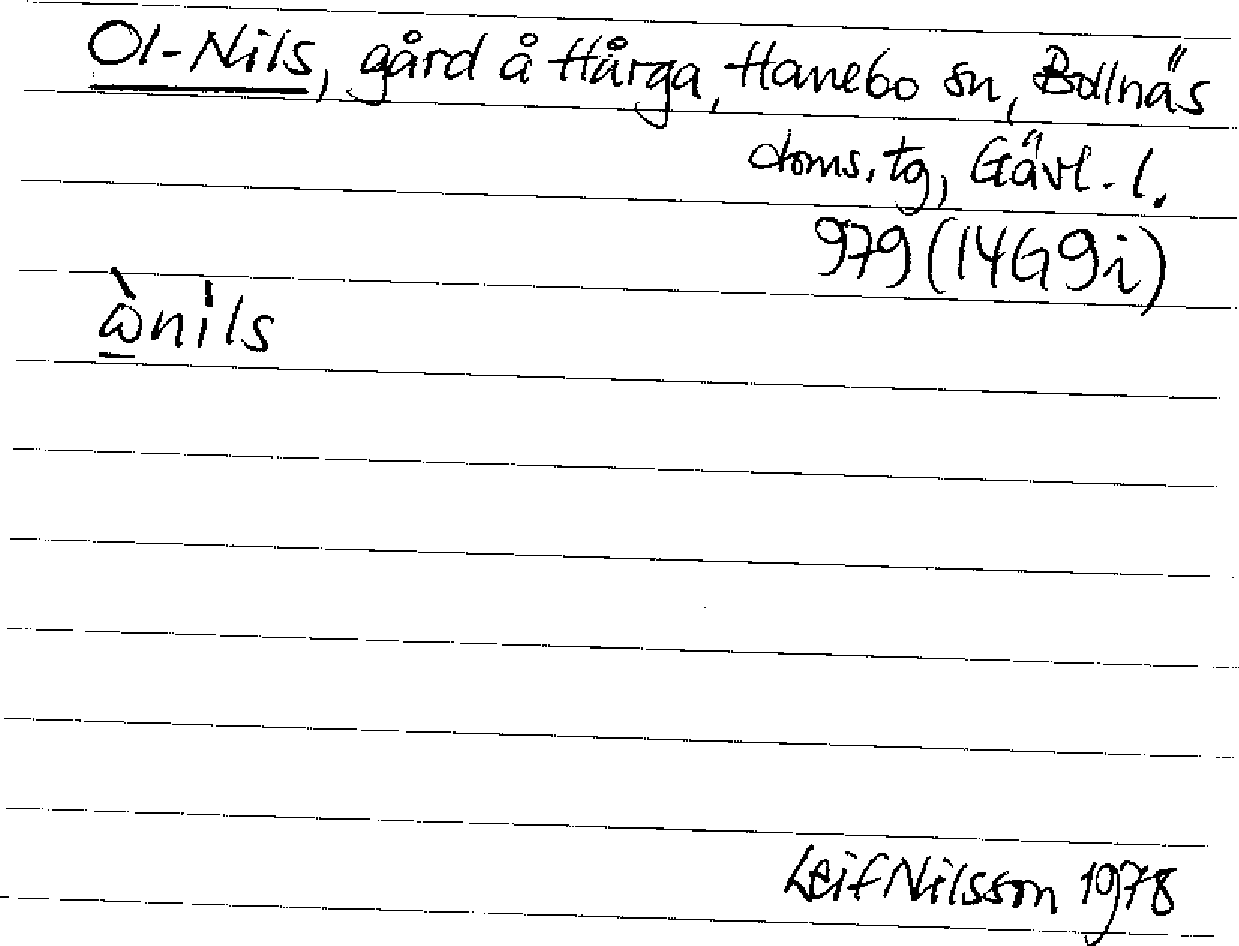 Ol-Nils, gård å Hårga, Hanebo sn, Bollnäs
doms.tg, Gävl. l.
979 (14G9i)
ὼ̲nils
Leif Nilsson 1978